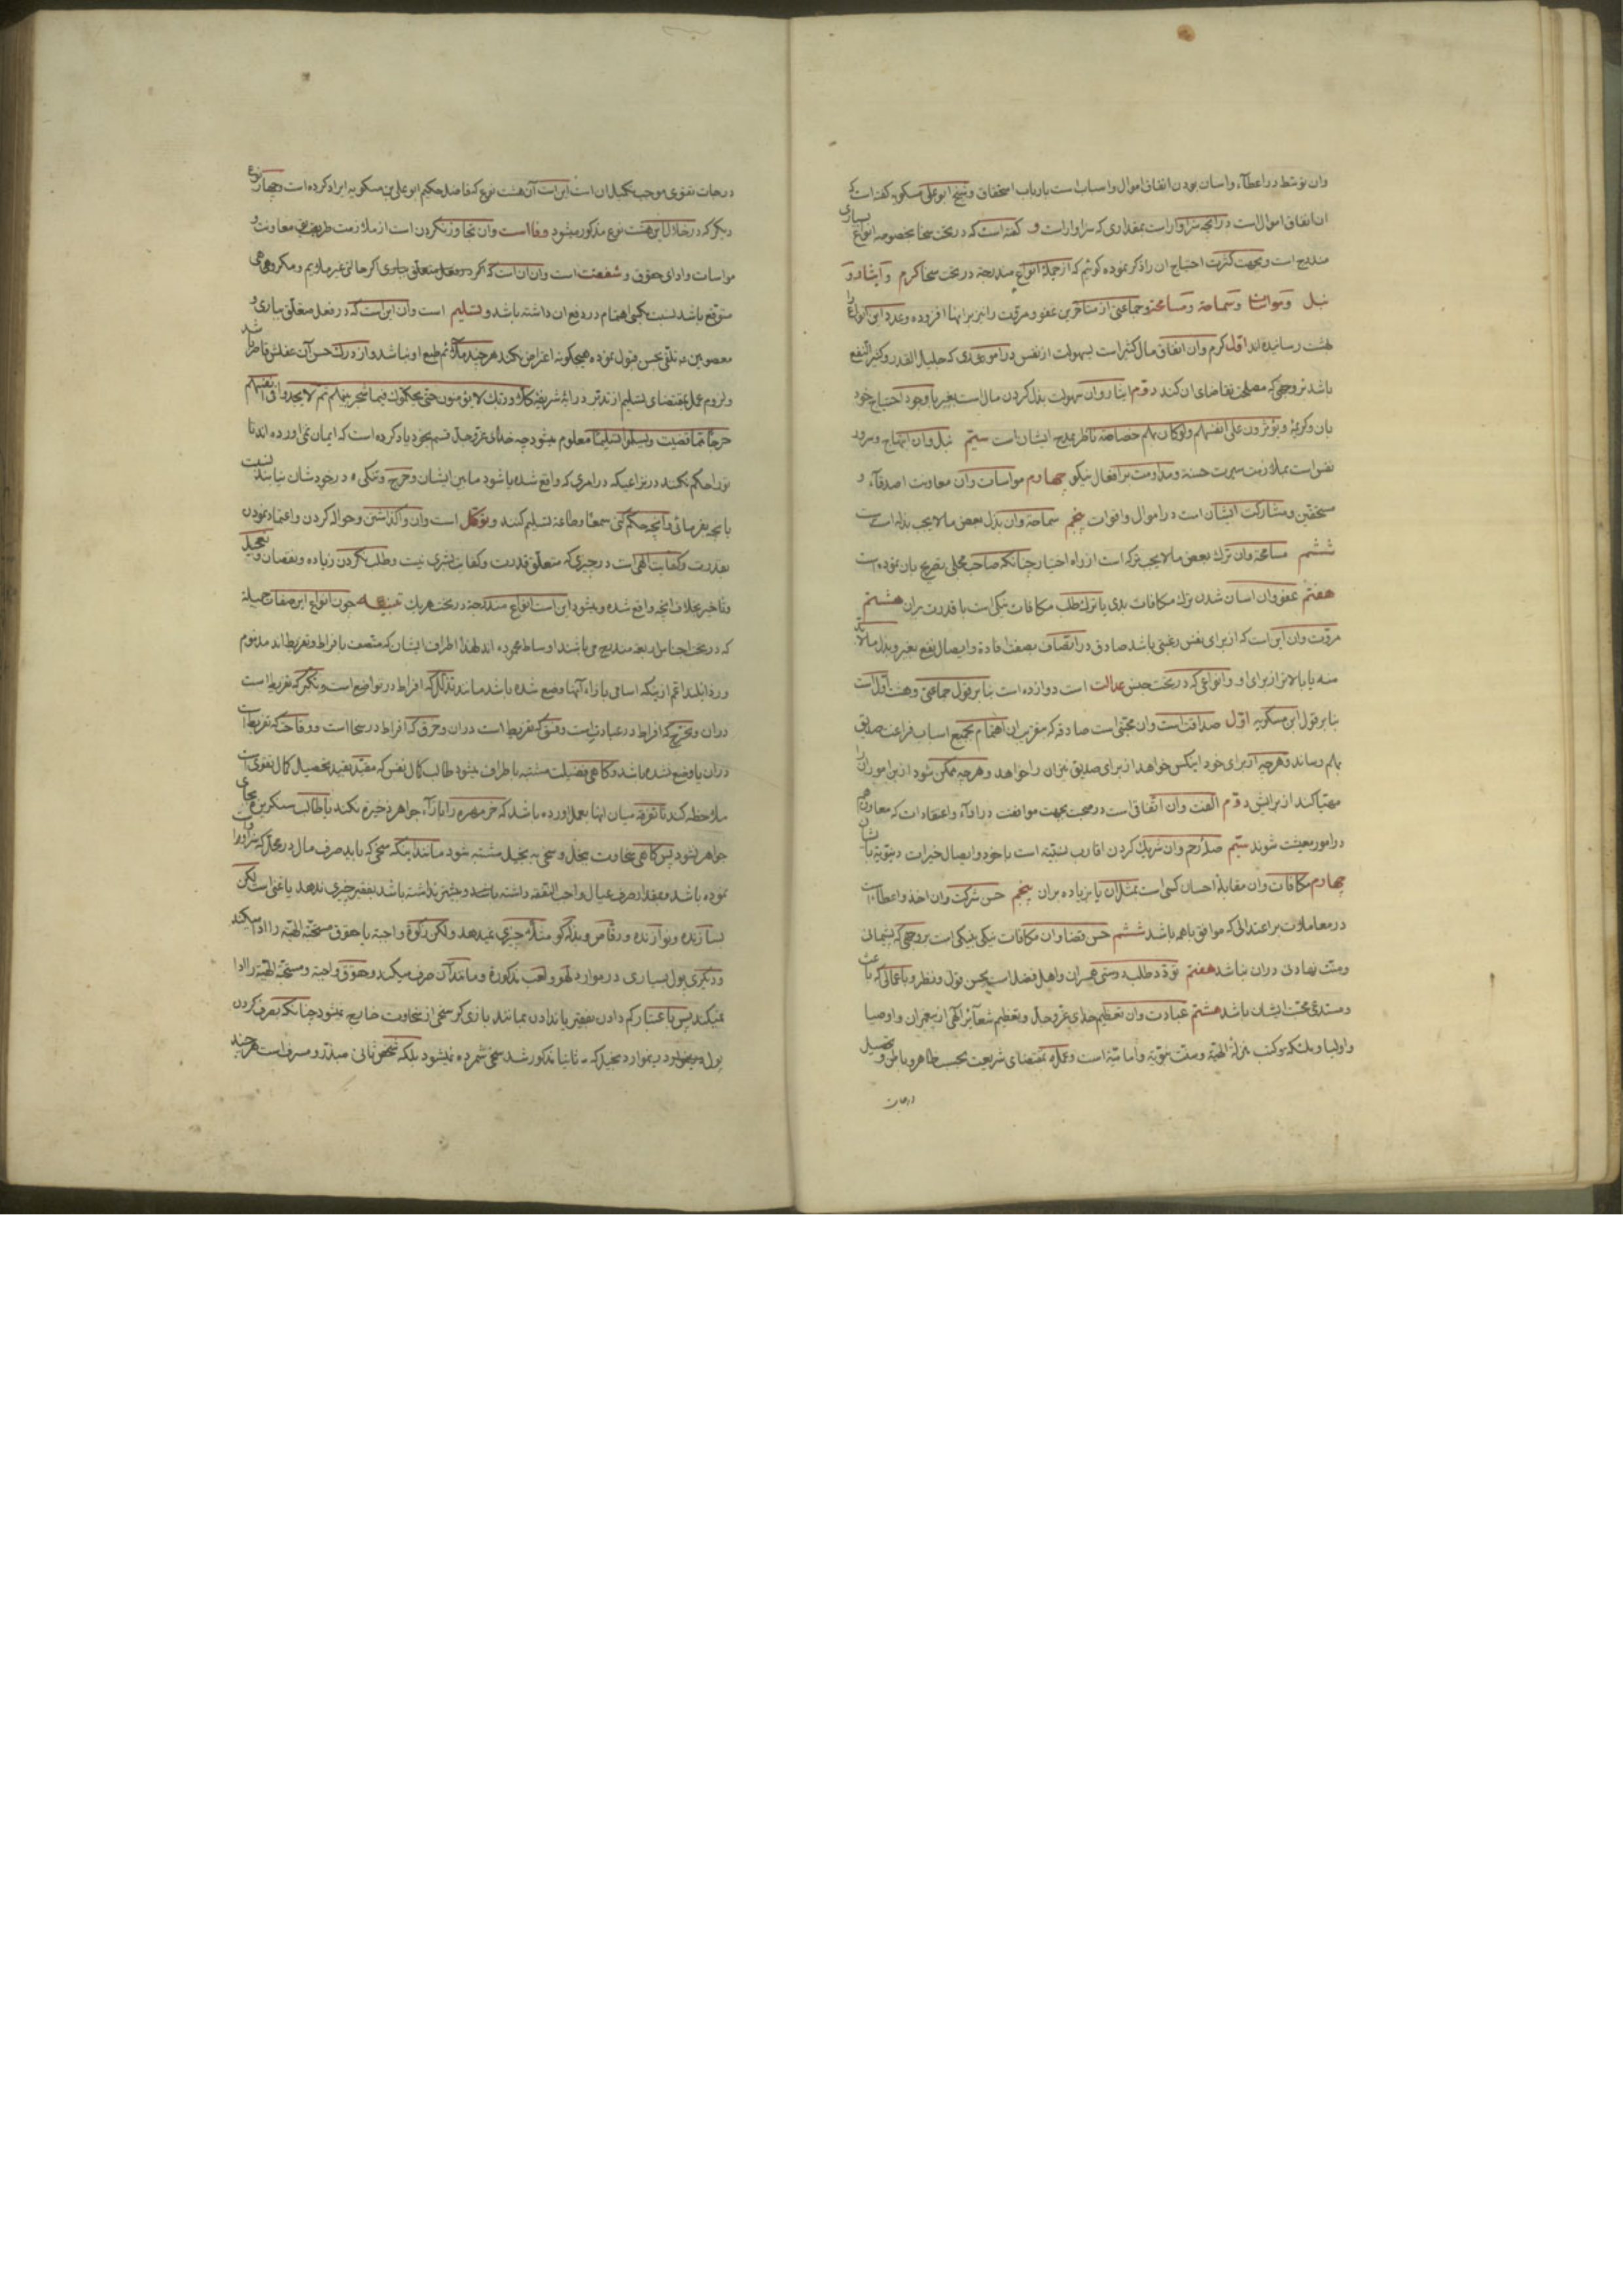 وان توسط در اعطاء واسان بودن انفاق اموال واسباب است بارباب استحقاق وشیخ ابو علی مسکویه گفته است که
ان انفاق اموال است در انچه سزاوار است بمقداری که سزاوار است و گفته است که در تحت سخا بخصوصه انواع بسیاری
مندرج است وبجهت کثرت احتیاج ان را ذکر نموده گوئیم که از جمله انواع مندرجه در تحت سخا کرم وایثار و
نبل ومواسا وسماحة ومسامحة وجماعتی از متاخرین عفو ومروت را نیز برانها افزوده وعدد این انواع را
بهشت رسانیده اند اول کرم وان انفاق مال کثیر است بسهولت از نفس در امور که جلیل القدر وکثیر النفع
باشد بر وجهی که مصلحت تقاضای ان کند دوم ایثار وان سهولت بذل کردن مال است بغیر با وجود احتیاج خود
بان وکریمه ویؤثرون علی انفسهم ولو کان بهم خصاصة ناظر بمدح ایشان است سیم نبل وان ابتهاج وسرور
نفس است بملازمت سیرت حسنه ومداومت بر افعال نیکو چهارم مواسات وان معاونت اصدقاء و
مستحقین ومشارکت ایشان است در اموال واقوات پنجم سماحة وان بذل بعض ما لا یجب بذله است
ششم مسامحة وان ترك بعض ما لا یجب ترکه است از راه اختیار چنانکه صاحب محلی تصریح بان نموده است
هفتم عفو وان اسان شدن ترك مکافات بدی یا ترك طلب مکافات نیکی است با قدرت بران هشتم
مروت وان این است که از برای نفس رغبتی باشد صادق در اتصاف بصفت افادة وایصال نفع بغیر وبذل ما لا بد
منه یا بالاتر از برای او وانواعی که در تحت جنس عدالت است دوازده است بنا بر قول جماعتی وهشت اول است
بنا بر قول ابن مسکویه اول صداقت است وان محبتی است صادقه که مقرب ان اهتمام بجمیع اسباب فراغت صدیق
بهم رساند وهر چه از برای خود اینکس خواهد از برای صدیق نیز ان را خواهد وهر چه ممکن شود از این امور ان را
مهیا کند از برایش دوم الفت وان اتفاقی است در صحبت بجهت موافقت در اراء واعتقادات که معاون هم
در امور معیشت شوند سیم صله رحم وان شریك کردن اقارب نسبیه است با خود وایصال خیرات دنیویه باایشان
چهارم مکافات وان مقابله احسان کسی است بمثل ان یا بزیاده بران پنجم حسن شرکت وان اخذ واعطا است
در معاملات بر اعتدالی که موافق با همه باشد ششم حسن قضا وان مکافات نیکی بنیکی است بر وجهی که پشیمانی
ومنت نهادنی دران نباشد هفتم تودد طلب دوستی همسران واهل فضل است بحسن قول ونظر وباعمالی که باعث
ومستدعی محبت ایشان باشد هشتم عبادت وان تعظیم خدای عزوجل وتعظیم شعائر الهی از پیغمبران واوصیا
واولیا وملئکه وکتب منزله الهیة وسنت نبویة وامامیة است وعمل بمقتضای شریعت بحسب ظاهر وباطن وتحصیل
درجات تقوی موجب تکمیل ان است این است آن هشت نوع که فاضل حکیم ابو علی بن مسکویه ایراد کرده است وچهار نوع
دیگر که در خلال این هشت نوع مذکور میشود وفا است وان تجاوز نکردن است از ملازمت طریقه معاونت و
مواسات وادای حقوق وشفقت است وان ان است که اگر حالتی غیر ملایم ومکروهی
متوقع باشد نسبت بکسی اهتمام در دفع ان داشته باشد وتسلیم است وان این است که در فعل متعلق بباری و
معصومین به تلقی بحسن قبول نموده بهیچگونه اعتراض نکند هر چند ملائم طبع او نباشد واز درك حسن آن عقلش قاصر باشد
ولزوم عمل بمقتضای تسلیم از تدبر در ایه شریفه فلا وربك لا یؤمنون حتی یحکموك فیما شجر بینهم ثم لا یجدوا فی انفسهم
حرجا مما قضیت ویسلموا تسلیما معلوم میشود چه خدای عزوجل قسم بخود یاد کرده است که ایمان نمی اورده اند تا
تو را حکم نکنند در نزاعیکه در امری که واقع شده باشد مابین ایشان وحرج وتنگی در خودشان نیابند نسبت
بانچه بفرمائی وانچه حکم کنی سمعا وطاعة تسلیم کنند وتوکل است وان واگذاشتن وحواله کردن واعتماد نمودن
بقدرت وکفایت الهی است در چیزی که متعلق قدرت وکفایت بشری نیست وطلب نکردن زیاده ونقصان وتعجیل
وتاخیر بخلاف انچه واقع شده ومیشود این است انواع مندرجة در تحت هر یك تنبیه چون انواع این صفات جمیله
که در تحت اجناس اربعه مندرج می باشند اوساط محموده اند لهذا اطراف ایشان که متصف بافراط وتفریط اند مذموم
ورذایلند اعم از اینکه اسامی بازاء آنها وضع شده باشد مانند تذلل که افراط در تواضع است وتکبر که تفریط است
دران وتحرج که افراط در عبادت است وفسق که تفریط است دران وحرق که افراط در سخا است ووقاحت که تفریط است
دران یا وضع نشده باشد وگاهی فضیلت مشتبه باطراف میشود طالب کمال نفس که مقید بقید تحصیل کمال نفوس است
ملاحظه کند تا تفرقه میان انها بعمل اورده باشد که خر مهره را بازاء جواهر ذخیره نکند یا طالب سنگریزه بجای
جواهر نشود پس گاهی سخاوت ببخل وسخی به بخیل مشتبه شود مانند اینکه سخی که باید صرف مال در محل که سزاوار است
نموده باشد وبقدر صرف عیال واجب النفقه داشته باشد وبیشتر نداشته باشد بفقیر چیزی ندهد یا غنی است لکن
بسازنده ونوازنده ورقاص وبذله گو مثلا چیزی نمیدهد ولکن زکوة واجبة یا حقوق مستحقه الهیه را ادا میکند
ودیگری پول بسیاری در موارد لهو ولعب مذکوره ومانند آن صرف میکند وحقوق واجبة ومستحقه الهیه را ادا
نمیکند پس باعتبار کم دادن بفقیر یا ندادن بمانند بازی گر سخی از سخاوت خارج نمیشود چنانکه بصرف کردن
پول در موارد بخیل که ثانیا مذکور شد سخی شمرده نمیشود بلکه شخص ثانی مبذر ومسرف است هر چند